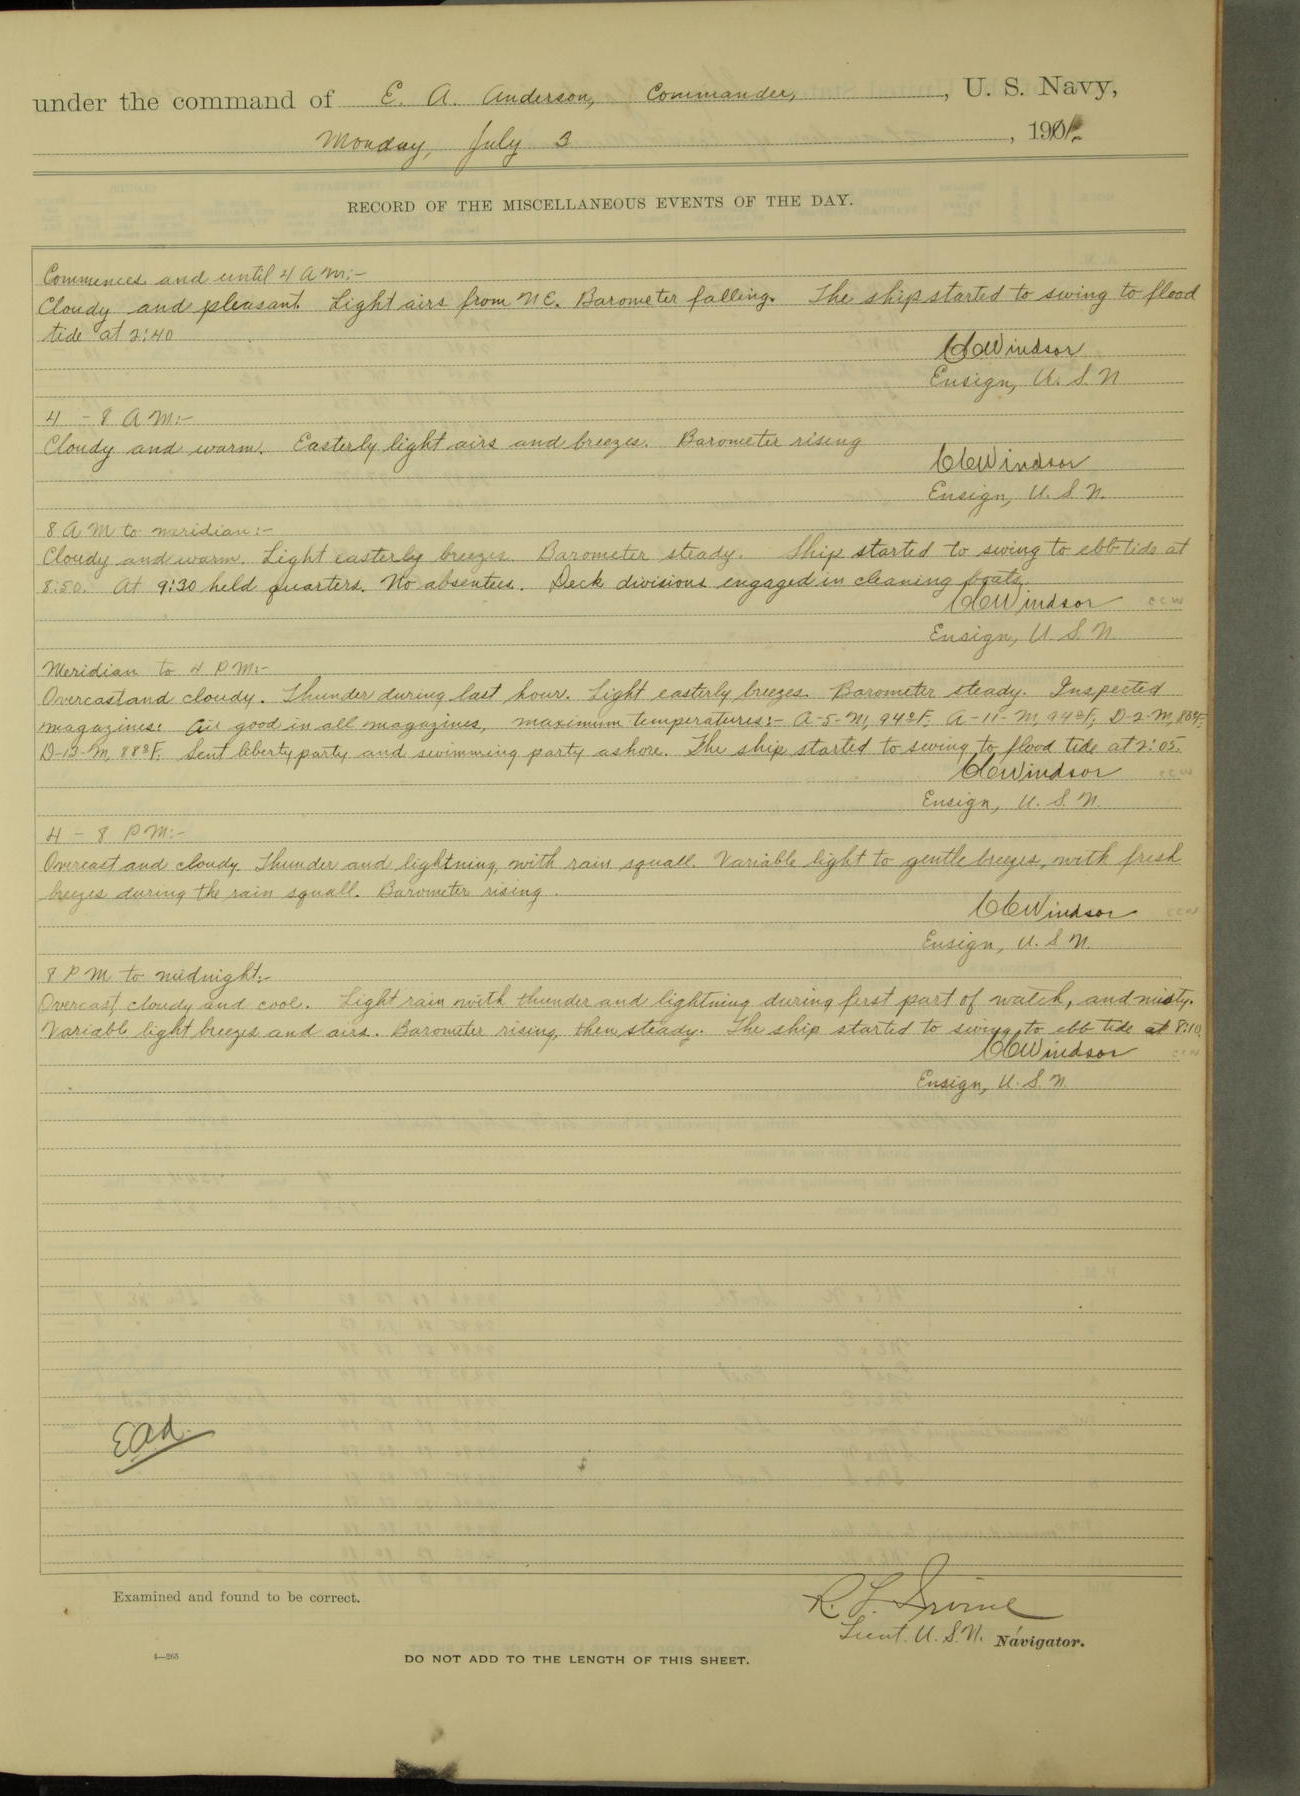 under the command of E. A. Anderson, Commander, , U. S. Navy,
Monday, July 3 , 191
RECORD OF THE MISCELLANEOUS EVENTS OF THE DAY.
Commences and until 4 A M:-
Cloudy and pleasant. Light airs from NE. Barometer falling. The ship started to swing to flood
tide at 2:40
CCWindsor
Ensign, U. S. N
4 - 8 A M:-
Cloudy and warm. Easterly light airs and breezes. Barometer rising
CCWindsor
Ensign, U. S. N.
8 A M to meridian:-
Cloudy and warm. Light easterly breezes. Barometer steady. Ship started to swing to ebb tide at
8:50. At 9:30 held quarters. No absentees. Deck divisions engaged in cleaning boats.
CCWindsor
Ensign, U. S. N.
Meridian to 4 P M:-
Overcast and cloudy. Thunder during last hour. Light easterly breezes. Barometer steady. Inspected
magazines: Air good in all magazines, maximum temperatures:- A-5-M, 94°F. A-11-M, 94°F, D-2-M, 80°F,
D-13-M, 88°F. Sent liberty party and swimming party ashore. The ship started to swing to flood tide at 2:05.
CCWindsor
Ensign, U. S. N.
4 - 8 P M:-
Overcast and cloudy. Thunder and lightning, with rain squall. Variable light to gentle breezes, with fresh
breezes during the rain squall. Barometer rising.
CCWindsor
Ensign, U. S. N.
8 P M to midnight:-
Overcast, cloudy and cool. Light rain with thunder and lightning during first part of watch, and misty.
Variable light breezes and airs. Barometer rising, then steady. The ship started to swing to ebb tide at 8:10.
CCWindsor
Ensign, U. S. N.
E.A.A.
Examined and found to be correct.
R. L. Irvine
Lieut. U. S. N. Navigator.
3—265
DO NOT ADD TO THE LENGTH OF THIS SHEET.